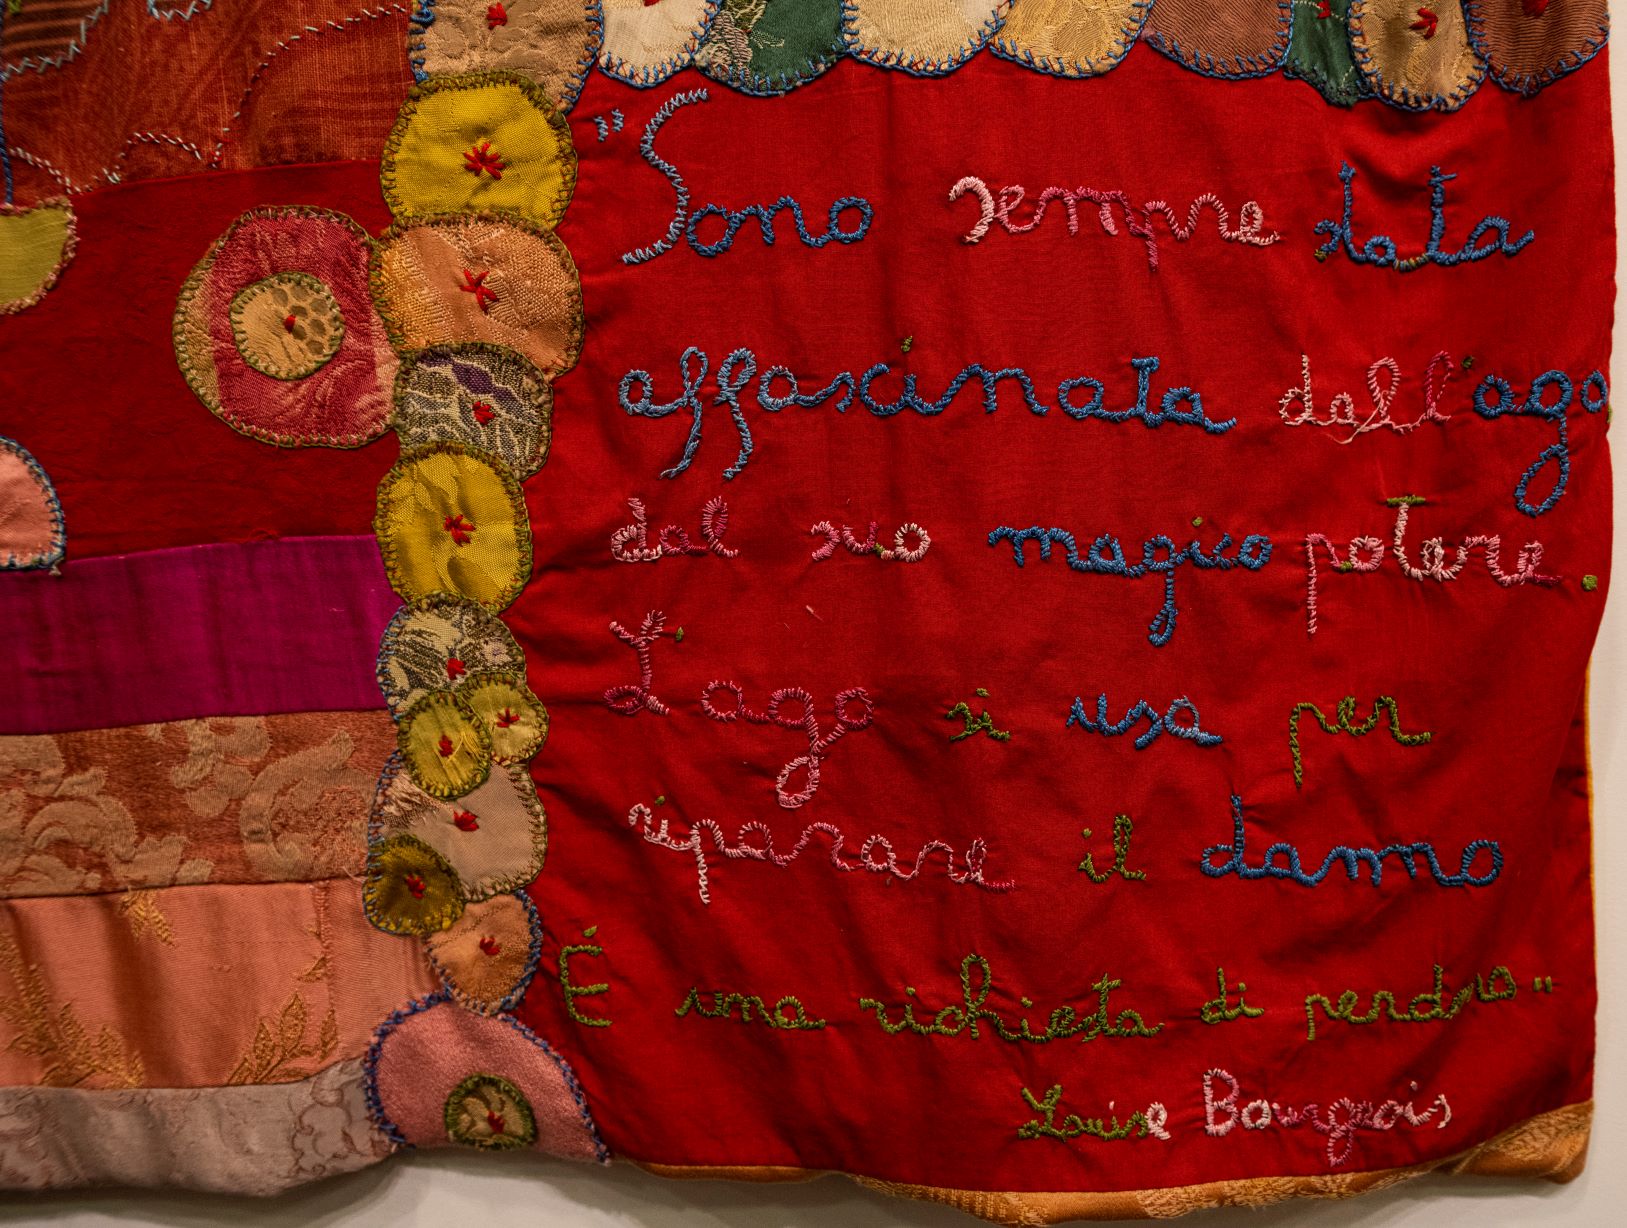 "Sono sempre stata
affascinata dall'ago
dal suo magico potere.
L'ago si usa per
riparare il danno
È una richiesta di perdono"
Louise Bourgeois